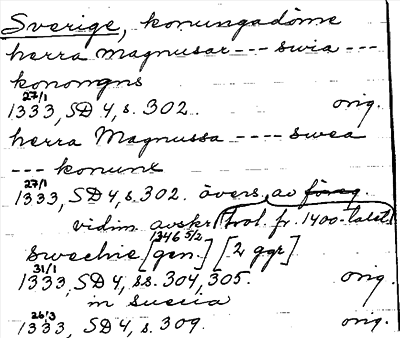 Sverige, konungadöme
herra magnusar --- swia ---
konomgns
27/1
1333, SD 4, s. 302. orig.
herra Magnussa ---- swea
--- konunx
27/1
1333, SD 4, s. 302. övers. av föreg.
vidim. avskr. (trol. fr. 1400-talet)
1346 5/2
Swechie [gen.] [2 ggr]
31/1
1333, SD 4, ss. 304, 305. orig.
in suecia
26/3
1333, SD 4, s. 309. orig.